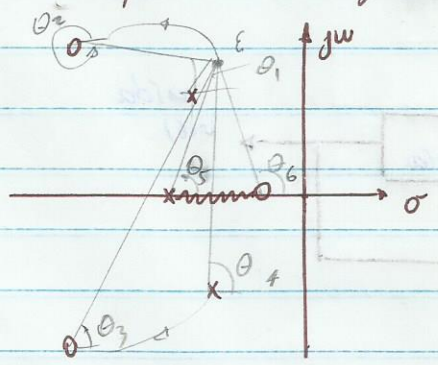 θ2
jw
ε
θ1
θ5
θ6
σ
θ4
θ3